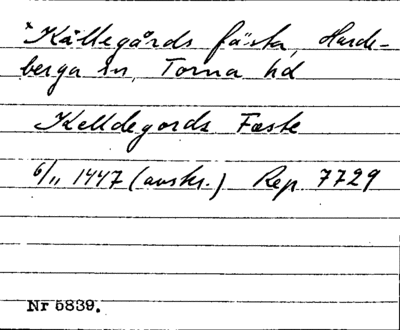 *Källegårds fästa, Harde-
berga sn, Torna hd
Kelldegords Fæste
6/11 1447 (avskr.) Rep 7729
Nr 5839.